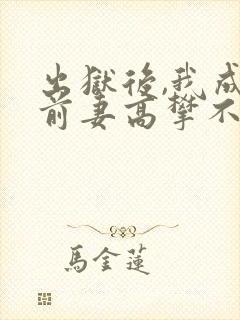 出獄後,我成
前妻高攀不
馬金蓮